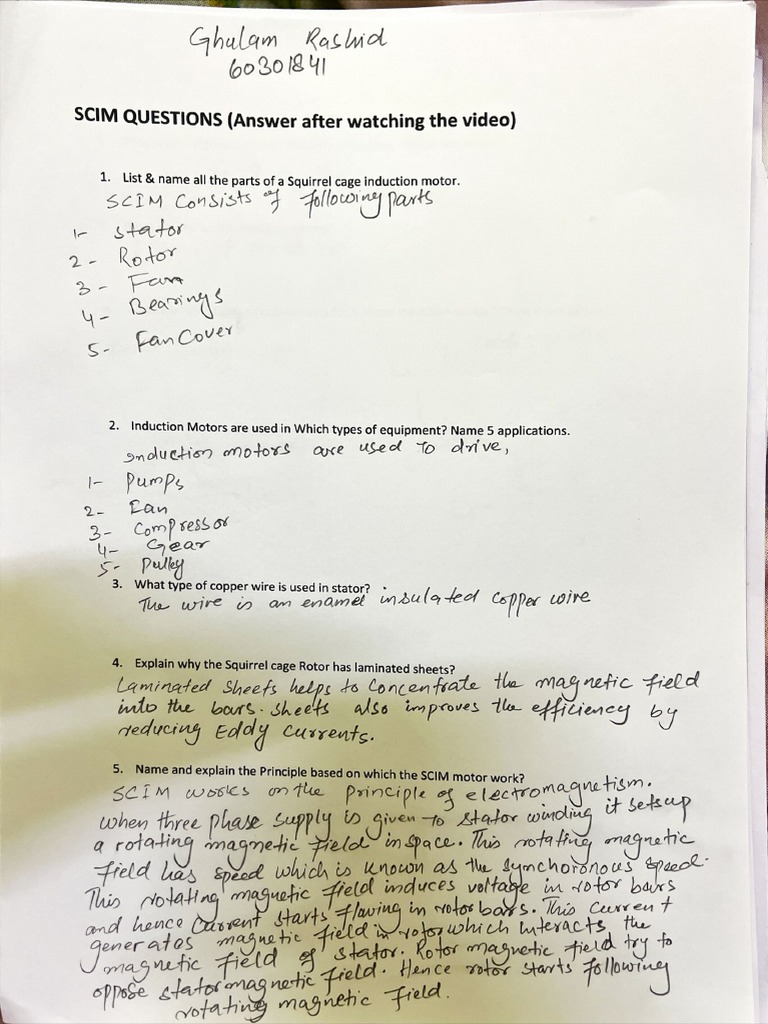 Ghulam Rashid
60301841
SCIM QUESTIONS (Answer after watching the video)
1. List & name all the parts of a Squirrel cage induction motor.
SCIM Consists of following parts
1- Stator
2- Rotor
3- Fan
4- Bearings
5- Fan Cover
2. Induction Motors are used in Which types of equipment? Name 5 applications.
Induction motors are used to drive,
1- Pumps
2- Fan
3- Compressor
4- Gear
5- Pulley
3. What type of copper wire is used in stator?
The wire is an enamel insulated copper wire
4. Explain why the Squirrel cage Rotor has laminated sheets?
Laminated Sheets helps to Concentrate the magnetic field
into the bars. Sheets also improves the efficiency by
reducing Eddy Currents.
5. Name and explain the Principle based on which the SCIM motor work?
SCIM works on the principle of electromagnetism.
When three phase supply is given to stator winding it sets up
a rotating magnetic field in space. This rotating magnetic
field has speed which is known as the Synchoronous speed.
This rotating magnetic field induces voltage in rotor bars
and hence Current starts flowing in rotor bars. This Current
generates magnetic field in rotor which interacts the
magnetic field of stator. Rotor magnetic field try to
oppose stator magnetic field. Hence rotor starts following
rotating magnetic field.